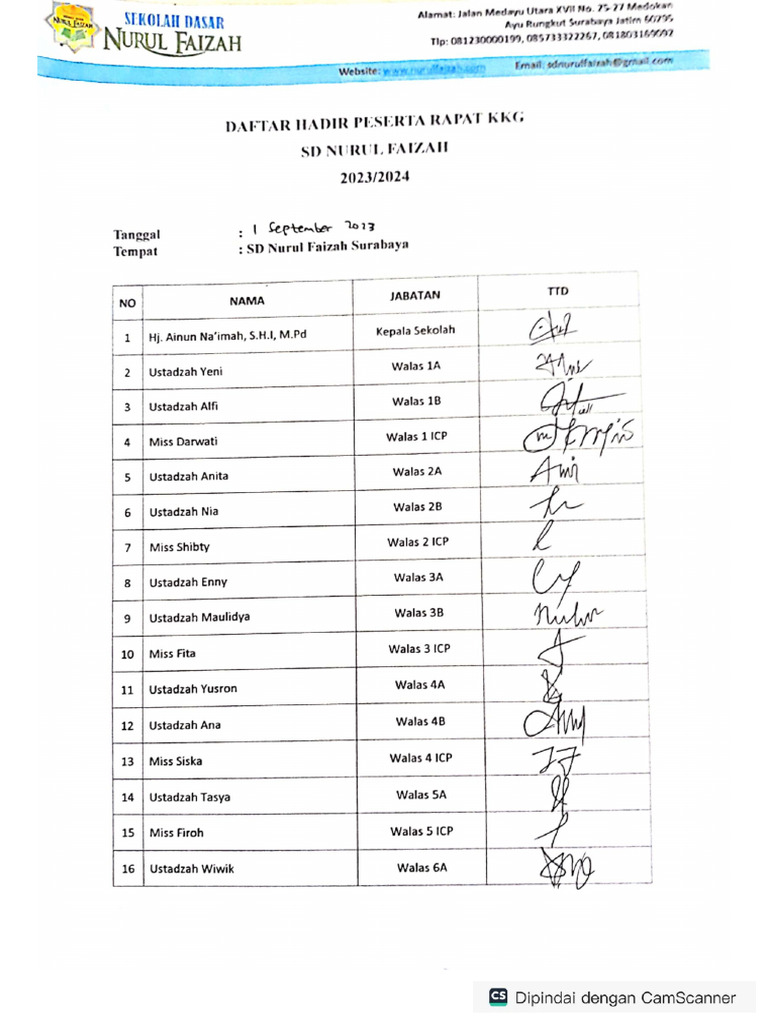 SEKOLAH DASAR
NURUL FAIZAH
NURUL FAIZAH
Alamat: Jalan Medayu Utara XVII No. 25-27 Medokan
Ayu Rungkut Surabaya Jatim 60295
Tlp: 081230000199, 085733322267, 081803169092
Website: www.nurulfaizah.com
Email: sdnurulfaizah@gmail.com
DAFTAR HADIR PESERTA RAPAT KKG
SD NURUL FAIZAH
2023/2024
Tanggal : 1 September 2023
Tempat : SD Nurul Faizah Surabaya
NO NAMA JABATAN TTD
1 Hj. Ainun Na'imah, S.H.I, M.Pd Kepala Sekolah
2 Ustadzah Yeni Walas 1A
3 Ustadzah Alfi Walas 1B
4 Miss Darwati Walas 1 ICP
5 Ustadzah Anita Walas 2A
6 Ustadzah Nia Walas 2B
7 Miss Shibty Walas 2 ICP
8 Ustadzah Enny Walas 3A
9 Ustadzah Maulidya Walas 3B
10 Miss Fita Walas 3 ICP
11 Ustadzah Yusron Walas 4A
12 Ustadzah Ana Walas 4B
13 Miss Siska Walas 4 ICP
14 Ustadzah Tasya Walas 5A
15 Miss Firoh Walas 5 ICP
16 Ustadzah Wiwik Walas 6A
CS Dipindai dengan CamScanner